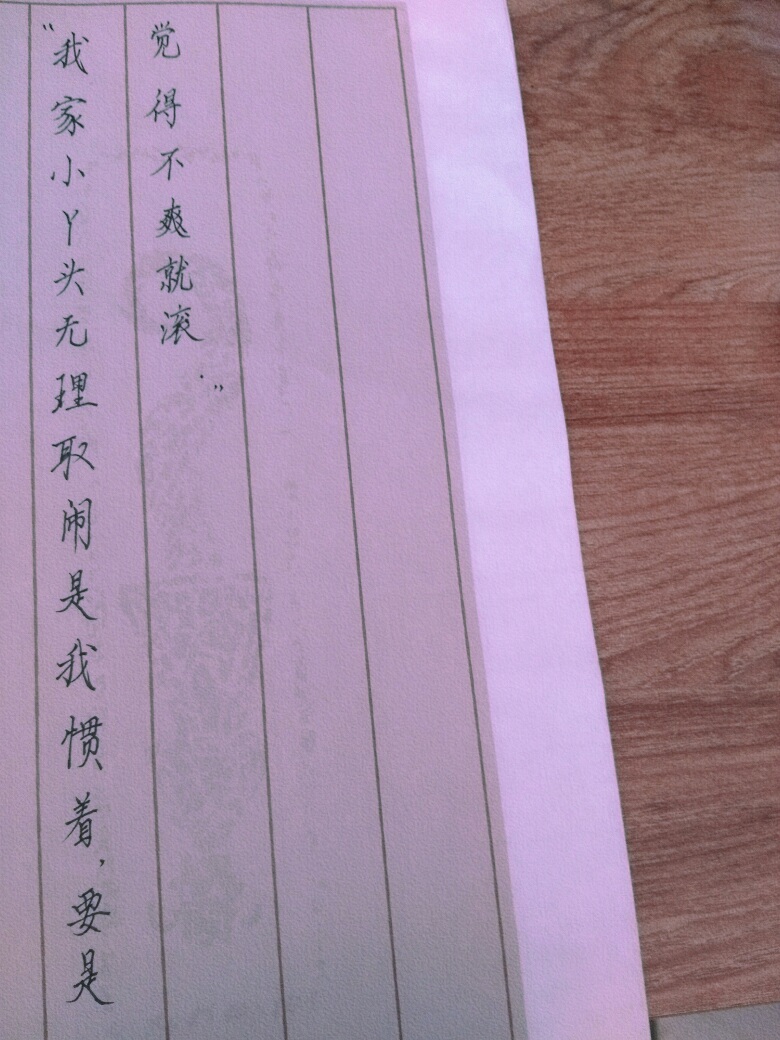 “我家小丫头无理取闹是我惯着，要是
觉得不爽就滚.”